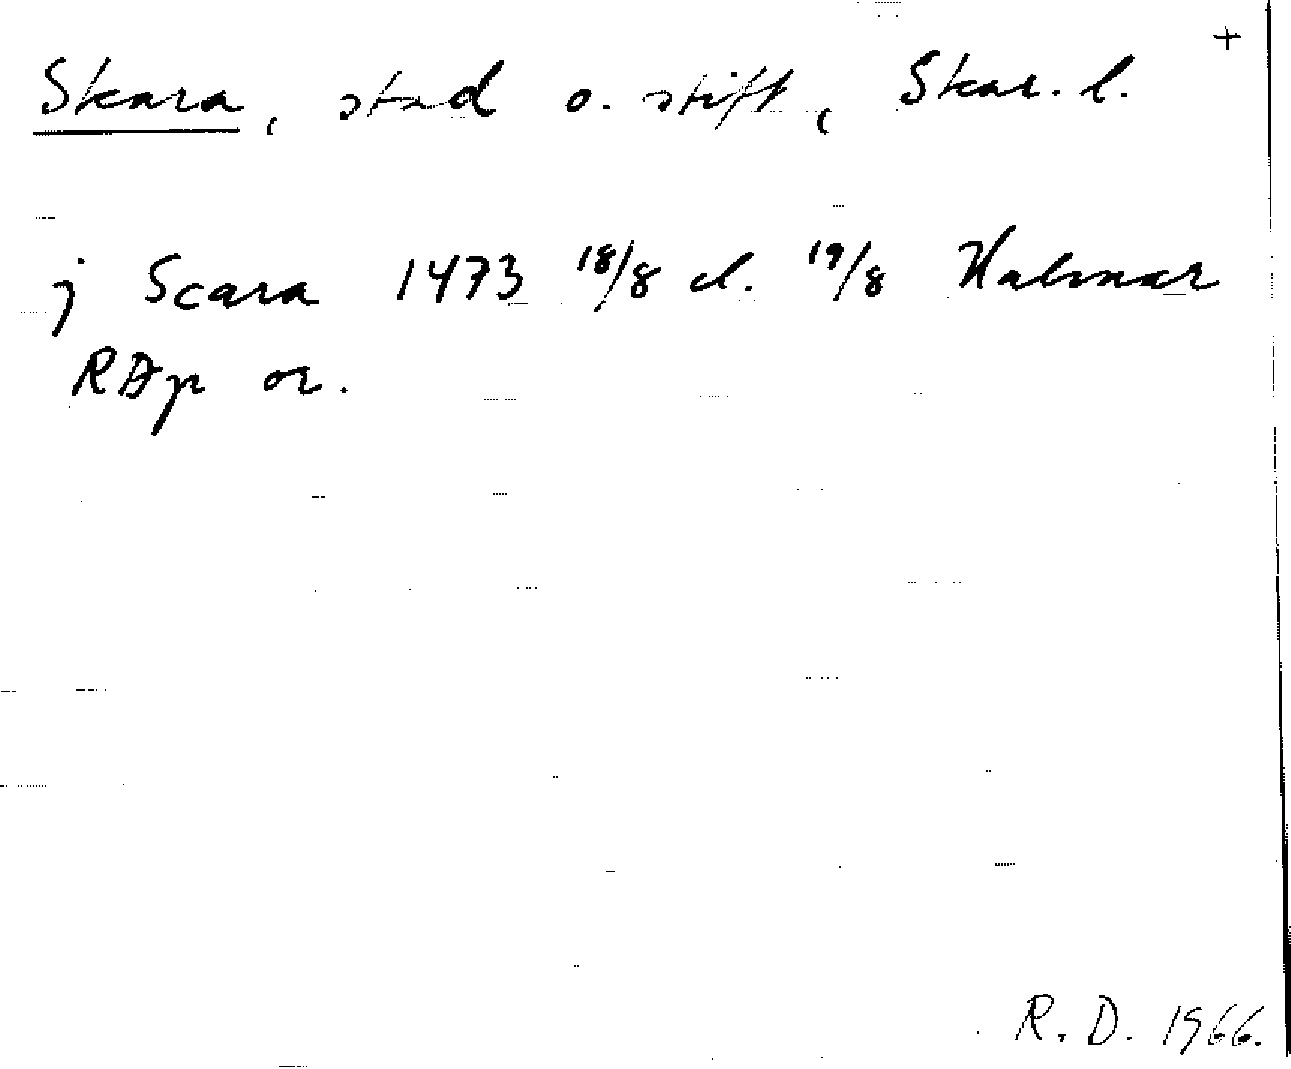 +
Skara, stad o. stift, Skar. l.
j Scara 1473 18/8 el. 19/8 Kalmar
RAp or.
R. D. 1966.